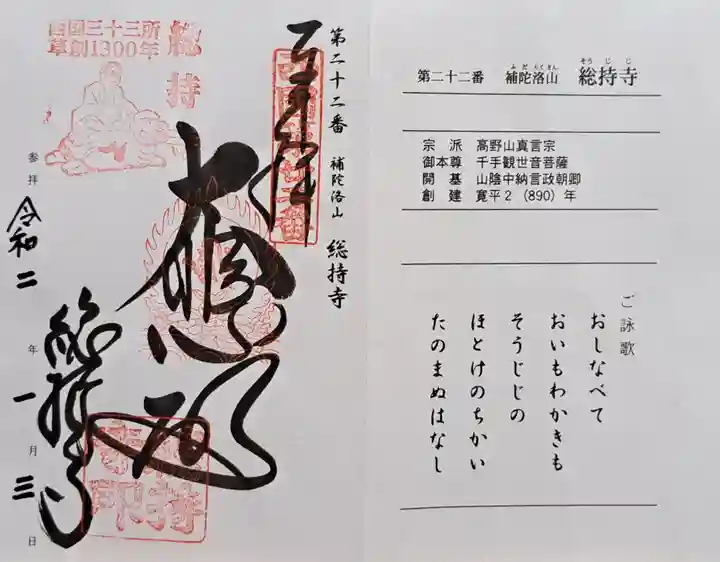 西国三十三所
草創1300年
総持
第二十二番 補陀洛山 総持寺
奉拝
西国第廿二番
大悲殿
総持寺
参拝 令和二年一月三日
総持寺印
ふだらくさん そうじじ
第二十二番 補陀洛山 総持寺
宗派 高野山真言宗
御本尊 千手観世音菩薩
開基 山陰中納言政朝卿
創建 寛平2(890)年
ご詠歌
おしなべて
おいもわかきも
そうじじの
ほとけのちかい
たのまぬはなし